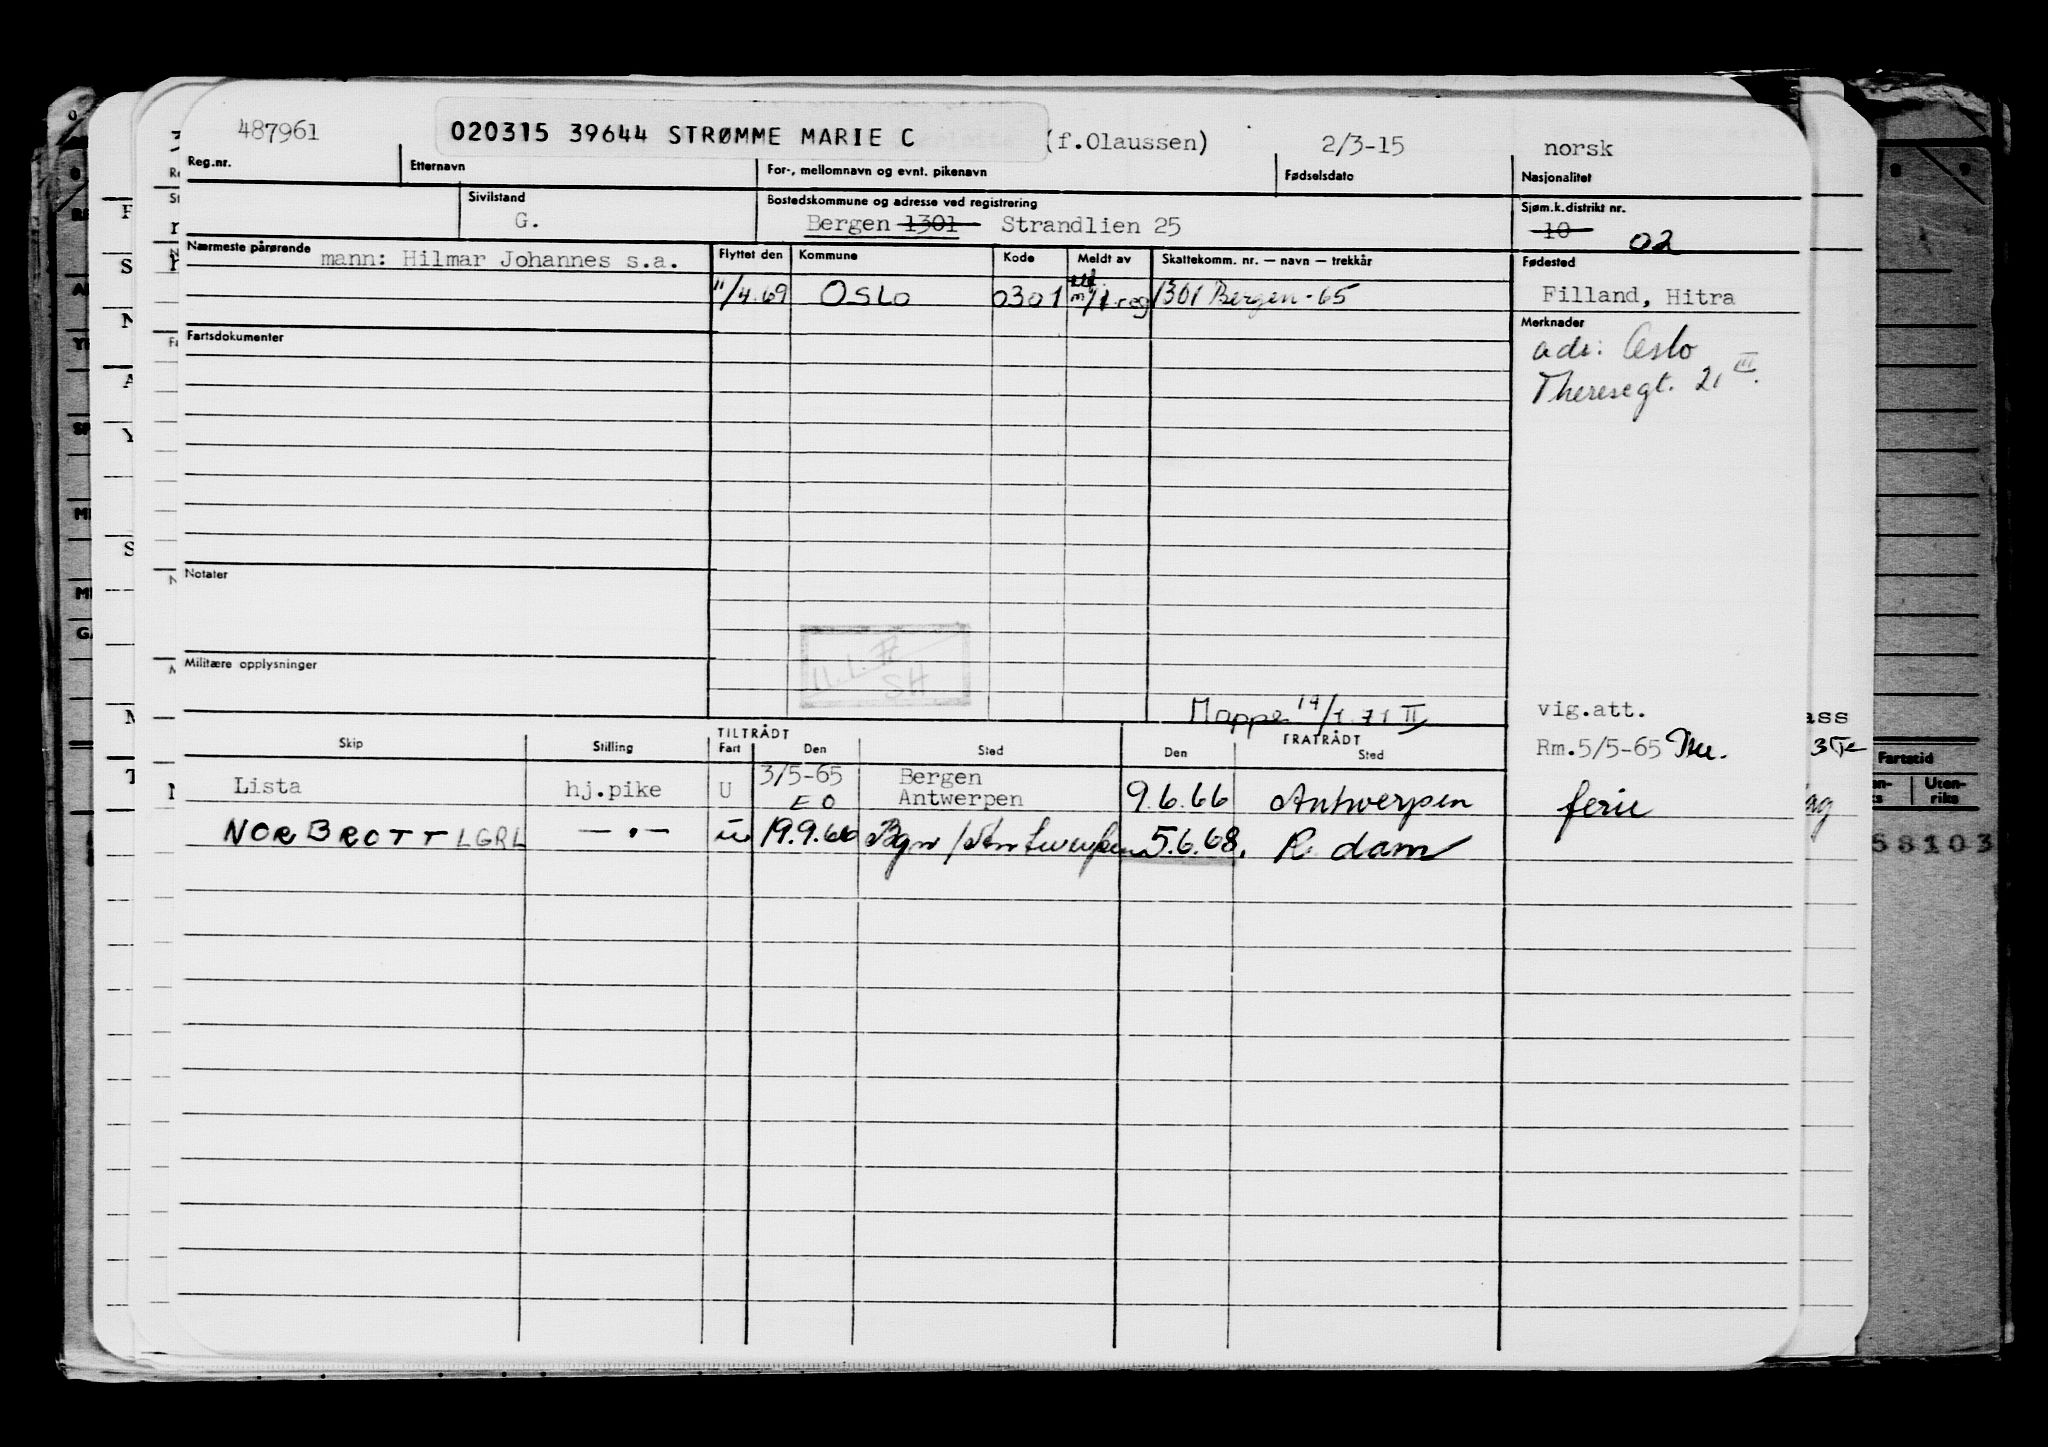 487961 020315 39644 STRØMME MARIE C (f.Olaussen) 2/3-15 norsk
Reg.nr. Etternavn For-, mellomnavn og evnt. pikenavn Fødselsdato Nasjonalitet
Sivilstand Bostedskommune og adresse ved registrering Sjøm.k.distrikt nr.
G. Bergen 1301 Strandlien 25 10 02
Nærmeste pårørende mann: Hilmar Johannes s.a. Flyttet den Kommune Kode Meldt av Skattekomm. nr. — navn — trekkår Fødested
11/4.69 OSLO 0301 1301 Bergen-65 Filland, Hitra
Fartsdokumenter Merknader
adr: Oslo
Theresegt. 21 III.
Notater
SH
Militære opplysninger
Mappe 14/1.71 II vig.att.
TILTRÅDT FRATRÅDT Rm.5/5-65
Skip Stilling Fart Den Sted Den Sted
Lista hj.pike U 3/5-65 Bergen 9.6.66 Antwerpen ferie
EO Antwerpen
NORBROTT LGRL — " — u 19.9.66 Bgn/Antwerpen 5.6.68. R dam
ass
Fartstid
Uten-
riks
58103